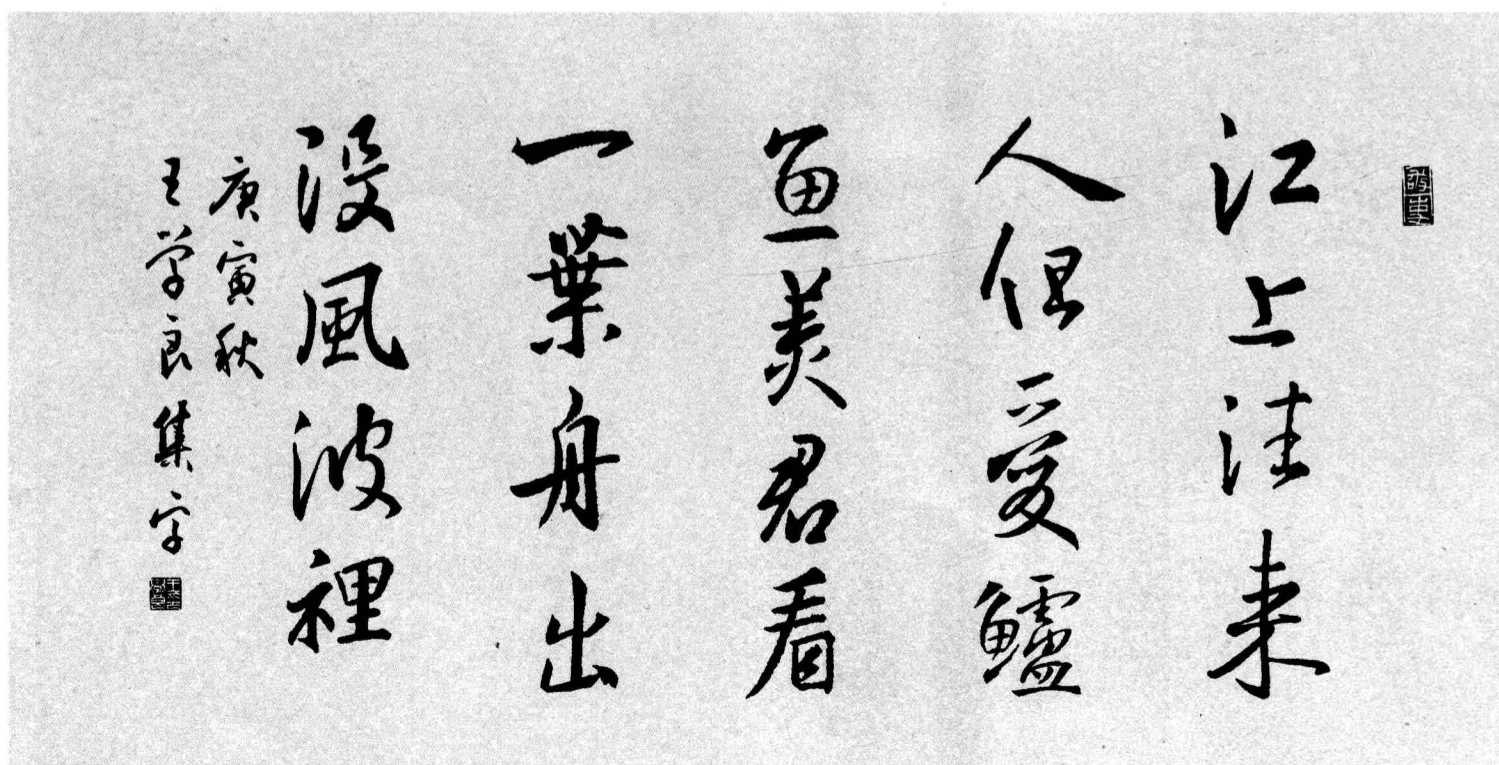 江上往来
人但爱鲈
鱼美君看
一葉舟出
没風波裡
庚寅秋
王学良集字